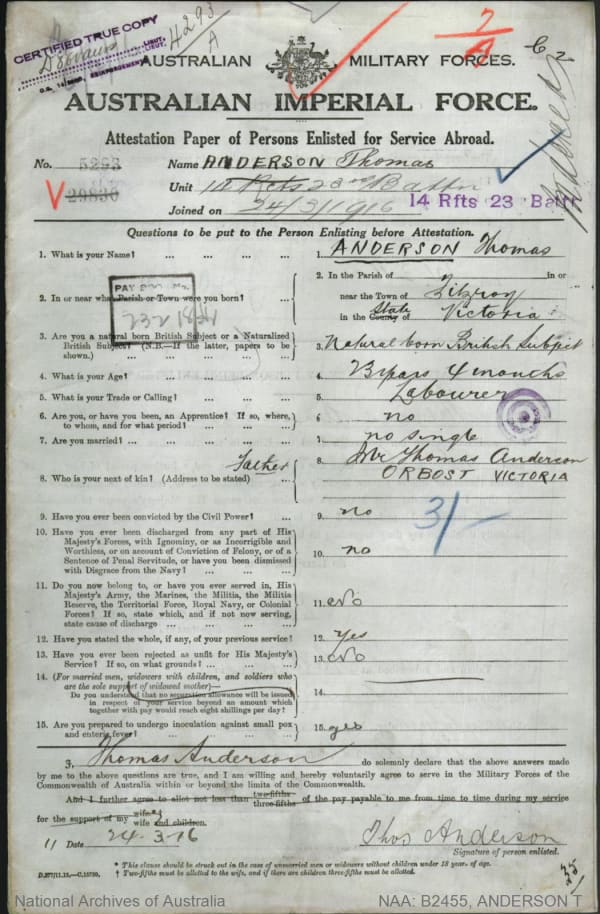 CERTIFIED TRUE COPY
LIEUT.
4293
A
7
A
AUSTRALIAN MILITARY FORCES.
AUSTRALIAN IMPERIAL FORCE.
Attestation Paper of Persons Enlisted for Service Abroad.
No. 5293 Name ANDERSON Thomas
29830 Unit 14 Rfts 23rd Battn 14 Rfts 23 Battn
Joined on 24/3/1916
Questions to be put to the Person Enlisting before Attestation.
1. What is your Name? ... ... ... 1. ANDERSON Thomas
2. In or near what Parish or Town were you born? ... 2. In the Parish of in or
near the Town of Fitzroy
in the County of State Victoria
PAY
3. Are you a natural born British Subject or a Naturalized
British Subject? (N.B.—If the latter, papers to be
shown.) ... ... 3. Natural born British Subject
4. What is your Age? ... ... ... 4. years 4 months
5. What is your Trade or Calling? ... ... 5. Labourer
6. Are you, or have you been, an Apprentice? If so, where,
to whom, and for what period? ... ... 6. no
7. Are you married? ... ... ... 7. no single
8. Who is your next of kin? (Address to be stated) ... Father 8. Mr Thomas Anderson
ORBOST VICTORIA
9. Have you ever been convicted by the Civil Power? ... 9. no
3/-
10. Have you ever been discharged from any part of His
Majesty's Forces, with Ignominy, or as Incorrigible and
Worthless, or on account of Conviction of Felony, or of a
Sentence of Penal Servitude, or have you been dismissed
with Disgrace from the Navy? ... ... 10. no
11. Do you now belong to, or have you ever served in, His
Majesty's Army, the Marines, the Militia, the Militia
Reserve, the Territorial Force, Royal Navy, or Colonial
Forces? If so, state which, and if not now serving,
state cause of discharge ... ... ... 11. No
12. Have you stated the whole, if any, of your previous service? 12. Yes
13. Have you ever been rejected as unfit for His Majesty's
Service? If so, on what grounds? ... ... 13. No
14. (For married men, widowers with children, and soldiers who
are the sole support of widowed mother)—
Do you understand that no separation allowance will be issued
in respect of your service beyond an amount which
together with pay would reach eight shillings per day? 14.
15. Are you prepared to undergo inoculation against small pox
and enteric fever? ... ... ... 15. yes
I, Thomas Anderson do solemnly declare that the above answers made
by me to the above questions are true, and I am willing and hereby voluntarily agree to serve in the Military Forces of the
Commonwealth of Australia within or beyond the limits of the Commonwealth.
And I further agree to allot not less than two-fifths three-fifths of the pay payable to me from time to time during my service
for the support of my wife wife and children.
Date 24-3-16 Thos Anderson
Signature of person enlisted.
* This clause should be struck out in the case of unmarried men or widowers without children under 18 years of age.
† Two-fifths must be allotted to the wife, and if there are children three-fifths must be allotted.
National Archives of Australia NAA: B2455, ANDERSON T